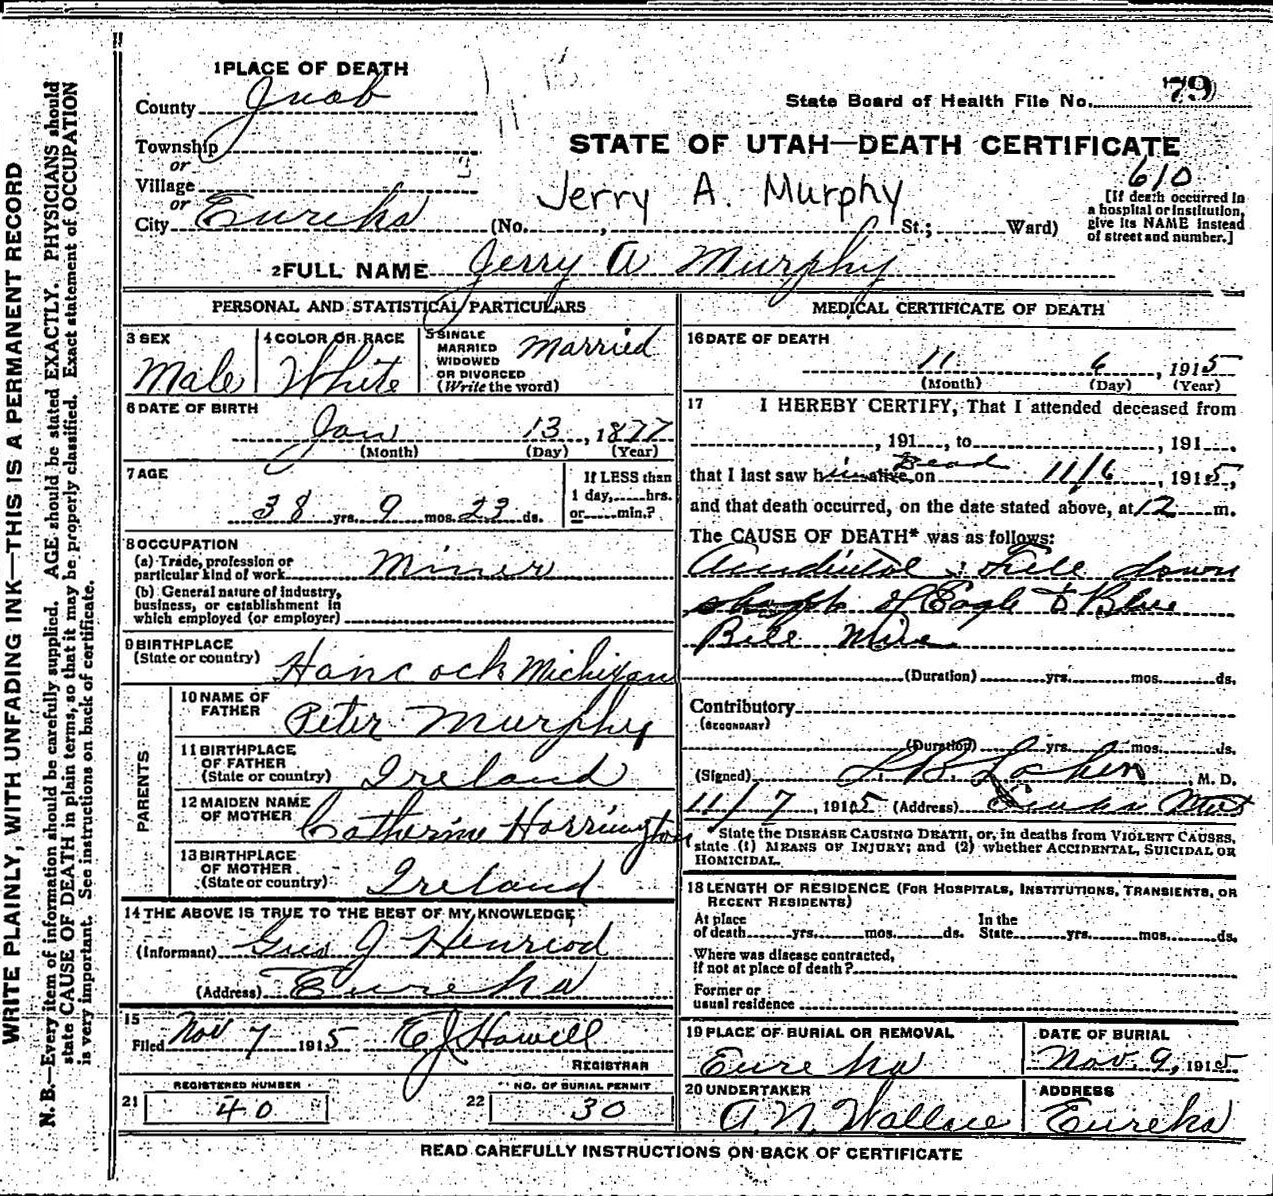 WRITE PLAINLY, WITH UNFADING INK—THIS IS A PERMANENT RECORD
N. B.—Every item of information should be carefully supplied. AGE should be stated EXACTLY. PHYSICIANS should
state CAUSE OF DEATH in plain terms, so that it may be properly classified. Exact statement of OCCUPATION
is very important. See instructions on back of certificate.
1 PLACE OF DEATH
County Juab
Township
or
Village
or
City Eureka
State Board of Health File No. 79
STATE OF UTAH—DEATH CERTIFICATE
610
Jerry A. Murphy
(No. , St.; Ward)
[If death occurred in
a hospital or institution,
give its NAME instead
of street and number.]
2 FULL NAME Jerry A Murphy
PERSONAL AND STATISTICAL PARTICULARS
3 SEX
Male
4 COLOR OR RACE
White
5 SINGLE
MARRIED
WIDOWED
OR DIVORCED
(Write the word)
Married
6 DATE OF BIRTH
Jan 13, 1877
(Month) (Day) (Year)
7 AGE
38 yrs. 9 mos. 23 ds.
If LESS than
1 day, hrs.
or min.?
8 OCCUPATION
(a) Trade, profession or
particular kind of work Miner
(b) General nature of industry,
business, or establishment in
which employed (or employer)
9 BIRTHPLACE
(State or country) Hancock Michigan
PARENTS
10 NAME OF
FATHER Peter Murphy
11 BIRTHPLACE
OF FATHER
(State or country) Ireland
12 MAIDEN NAME
OF MOTHER Catherine Harrington
13 BIRTHPLACE
OF MOTHER
(State or country) Ireland
14 THE ABOVE IS TRUE TO THE BEST OF MY KNOWLEDGE
(Informant) Gus J Henriod
(Address) Eureka
15
Filed Nov 7 1915 E J Howell
REGISTRAR
REGISTERED NUMBER
21 40
NO. OF BURIAL PERMIT
22 30
MEDICAL CERTIFICATE OF DEATH
16 DATE OF DEATH
11 6, 1915
(Month) (Day) (Year)
17 I HEREBY CERTIFY, That I attended deceased from
, 191 , to , 191 .
that I last saw him alive on Dead 11/6, 1915,
and that death occurred, on the date stated above, at 12 m.
The CAUSE OF DEATH* was as follows:
Accidental: Fell down
shaft of Eagle & Blue
Bell Mine
(Duration) yrs. mos. ds.
Contributory
(SECONDARY)
(Duration) yrs. mos. ds.
(Signed) M. D.
11/7, 1915 (Address) Eureka
*State the DISEASE CAUSING DEATH, or, in deaths from VIOLENT CAUSES,
state (1) MEANS OF INJURY; and (2) whether ACCIDENTAL, SUICIDAL OR
HOMICIDAL.
18 LENGTH OF RESIDENCE (FOR HOSPITALS, INSTITUTIONS, TRANSIENTS, OR
RECENT RESIDENTS)
At place
of death yrs. mos. ds.
In the
State yrs. mos. ds.
Where was disease contracted,
if not at place of death?
Former or
usual residence
19 PLACE OF BURIAL OR REMOVAL
Eureka
DATE OF BURIAL
Nov. 9, 1915
20 UNDERTAKER
A. N. Wallace
ADDRESS
Eureka
READ CAREFULLY INSTRUCTIONS ON BACK OF CERTIFICATE